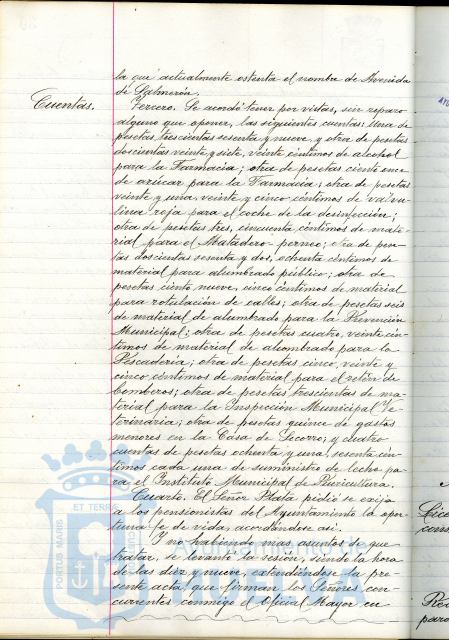 la que actualmente ostenta el nombre de Avenida
de Salmerón.
Cuentas.
Tercero. Se acordó tener por vistas, sin reparo
alguno que oponer, las siguientes cuentas: Una de
pesetas trescientas sesenta y nueve, y otra de pesetas
doscientas veinte y siete, veinte céntimos de alcohol
para la Farmacia; otra de pesetas ciento once
de azúcar para la Farmacia; otra de pesetas
veinte y una, veinte y cinco céntimos de valvu-
lina roja para el coche de la desinfección;
otra de pesetas tres, cincuenta céntimos de mate-
rial para el Matadero porcuno; otra de pese-
tas doscientas sesenta y dos, ochenta céntimos de
material para alumbrado público; otra de
pesetas ciento nueve, cinco céntimos de material
para rotulación de calles; otra de pesetas seis
de material de alumbrado para la Prevención
Municipal; otra de pesetas cuatro, veinte cén-
timos de material de alumbrado para la
Pescadería; otra de pesetas cinco, veinte y
cinco céntimos de material para el retén de
bomberos; otra de pesetas trescientas de ma-
terial para la Inspección Municipal Ve-
terinaria; otra de pesetas quince de gastos
menores en la Casa de Socorro; y cuatro
cuentas de pesetas ochenta y una, sesenta cén-
timos cada una de suministro de leche pa-
ra el Instituto Municipal de Puericultura.
Cuarto. El Señor Plata pidió se exija
a los pensionistas del Ayuntamiento la opor-
tuna fe de vida, acordándose así.
Y no habiendo mas asuntos de que
tratar, se levantó la sesión, siendo la hora
de las diez y nueve, extendiéndose la pre-
sente acta que firman los Señores con-
currentes conmigo el Oficial Mayor en
ET TERRA
PORTUS MARIS